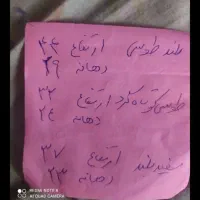 بلند طوسی ارتفاع ۴۴
دهانه ۲۹
طوسی کوتاه گرد ارتفاع ۳۲
دهانه ۲۴
سفید بلند ارتفاع ۳۷
دهانه ۲۳
REDMI NOTE 8
AI QUAD CAMERA